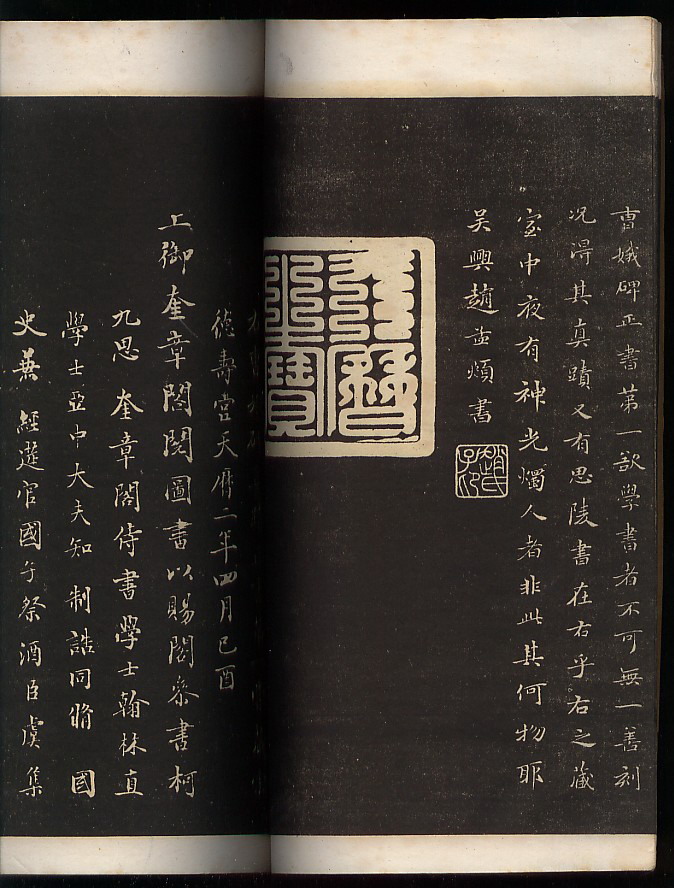 曹娥碑正書第一欲學書者不可無一善刻
況得其真蹟又有思陵書在右乎右之藏
室中夜有神光燭人者非此其何物耶
吳興趙孟頫書
趙氏子昂
天曆之寶
德壽宮天曆二年四月己酉
上御奎章閣閱圖書以賜閣參書柯
九思奎章閣侍書學士翰林直
學士亞中大夫知制誥同脩國
史兼經筵官國子祭酒臣虞集